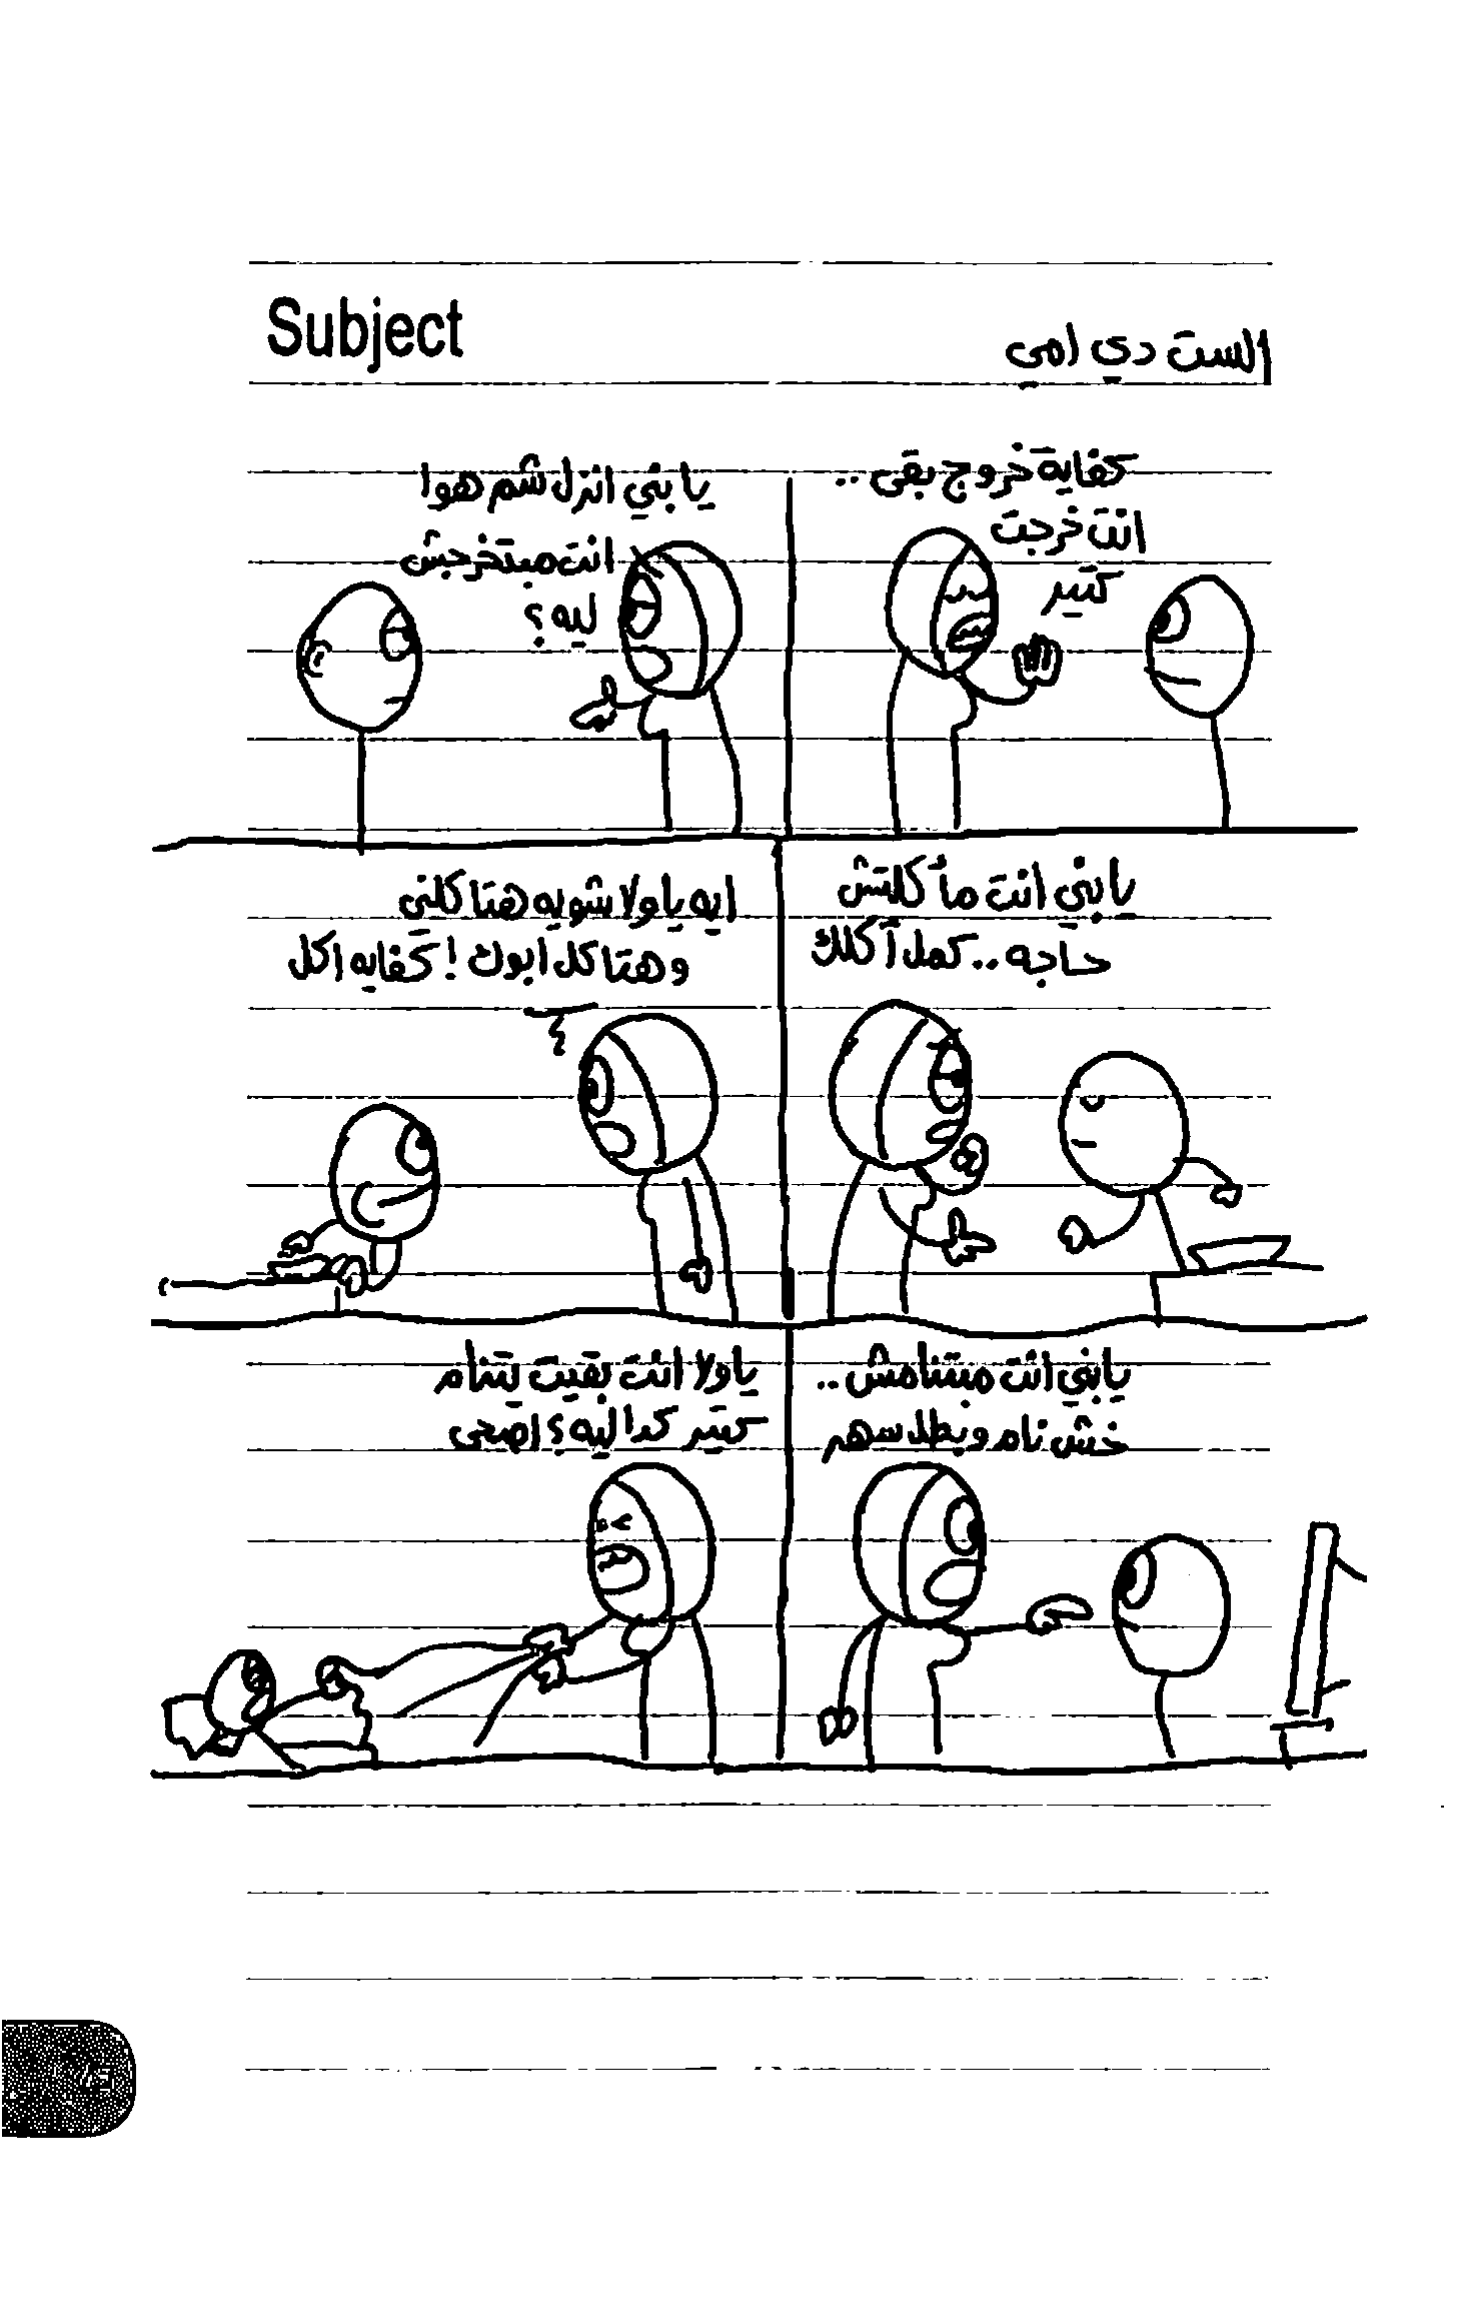 Subject
الست دي امي
كفاية خروج بقى..
انت خرجت
كتير
يا بني انزل شم هوا
انت مبتخرجش
ليه؟
يا بني انت مأكلتش
حاجه.. كمل أكلك
ايه ياولا شويه هتاكلني
وهتاكل ابوك! كفايه اكل
يابني انت مبتنامش..
خش نام وبطل سهر
ياولا انت بقيت بتنام
كتير كدا ليه؟ اصحى